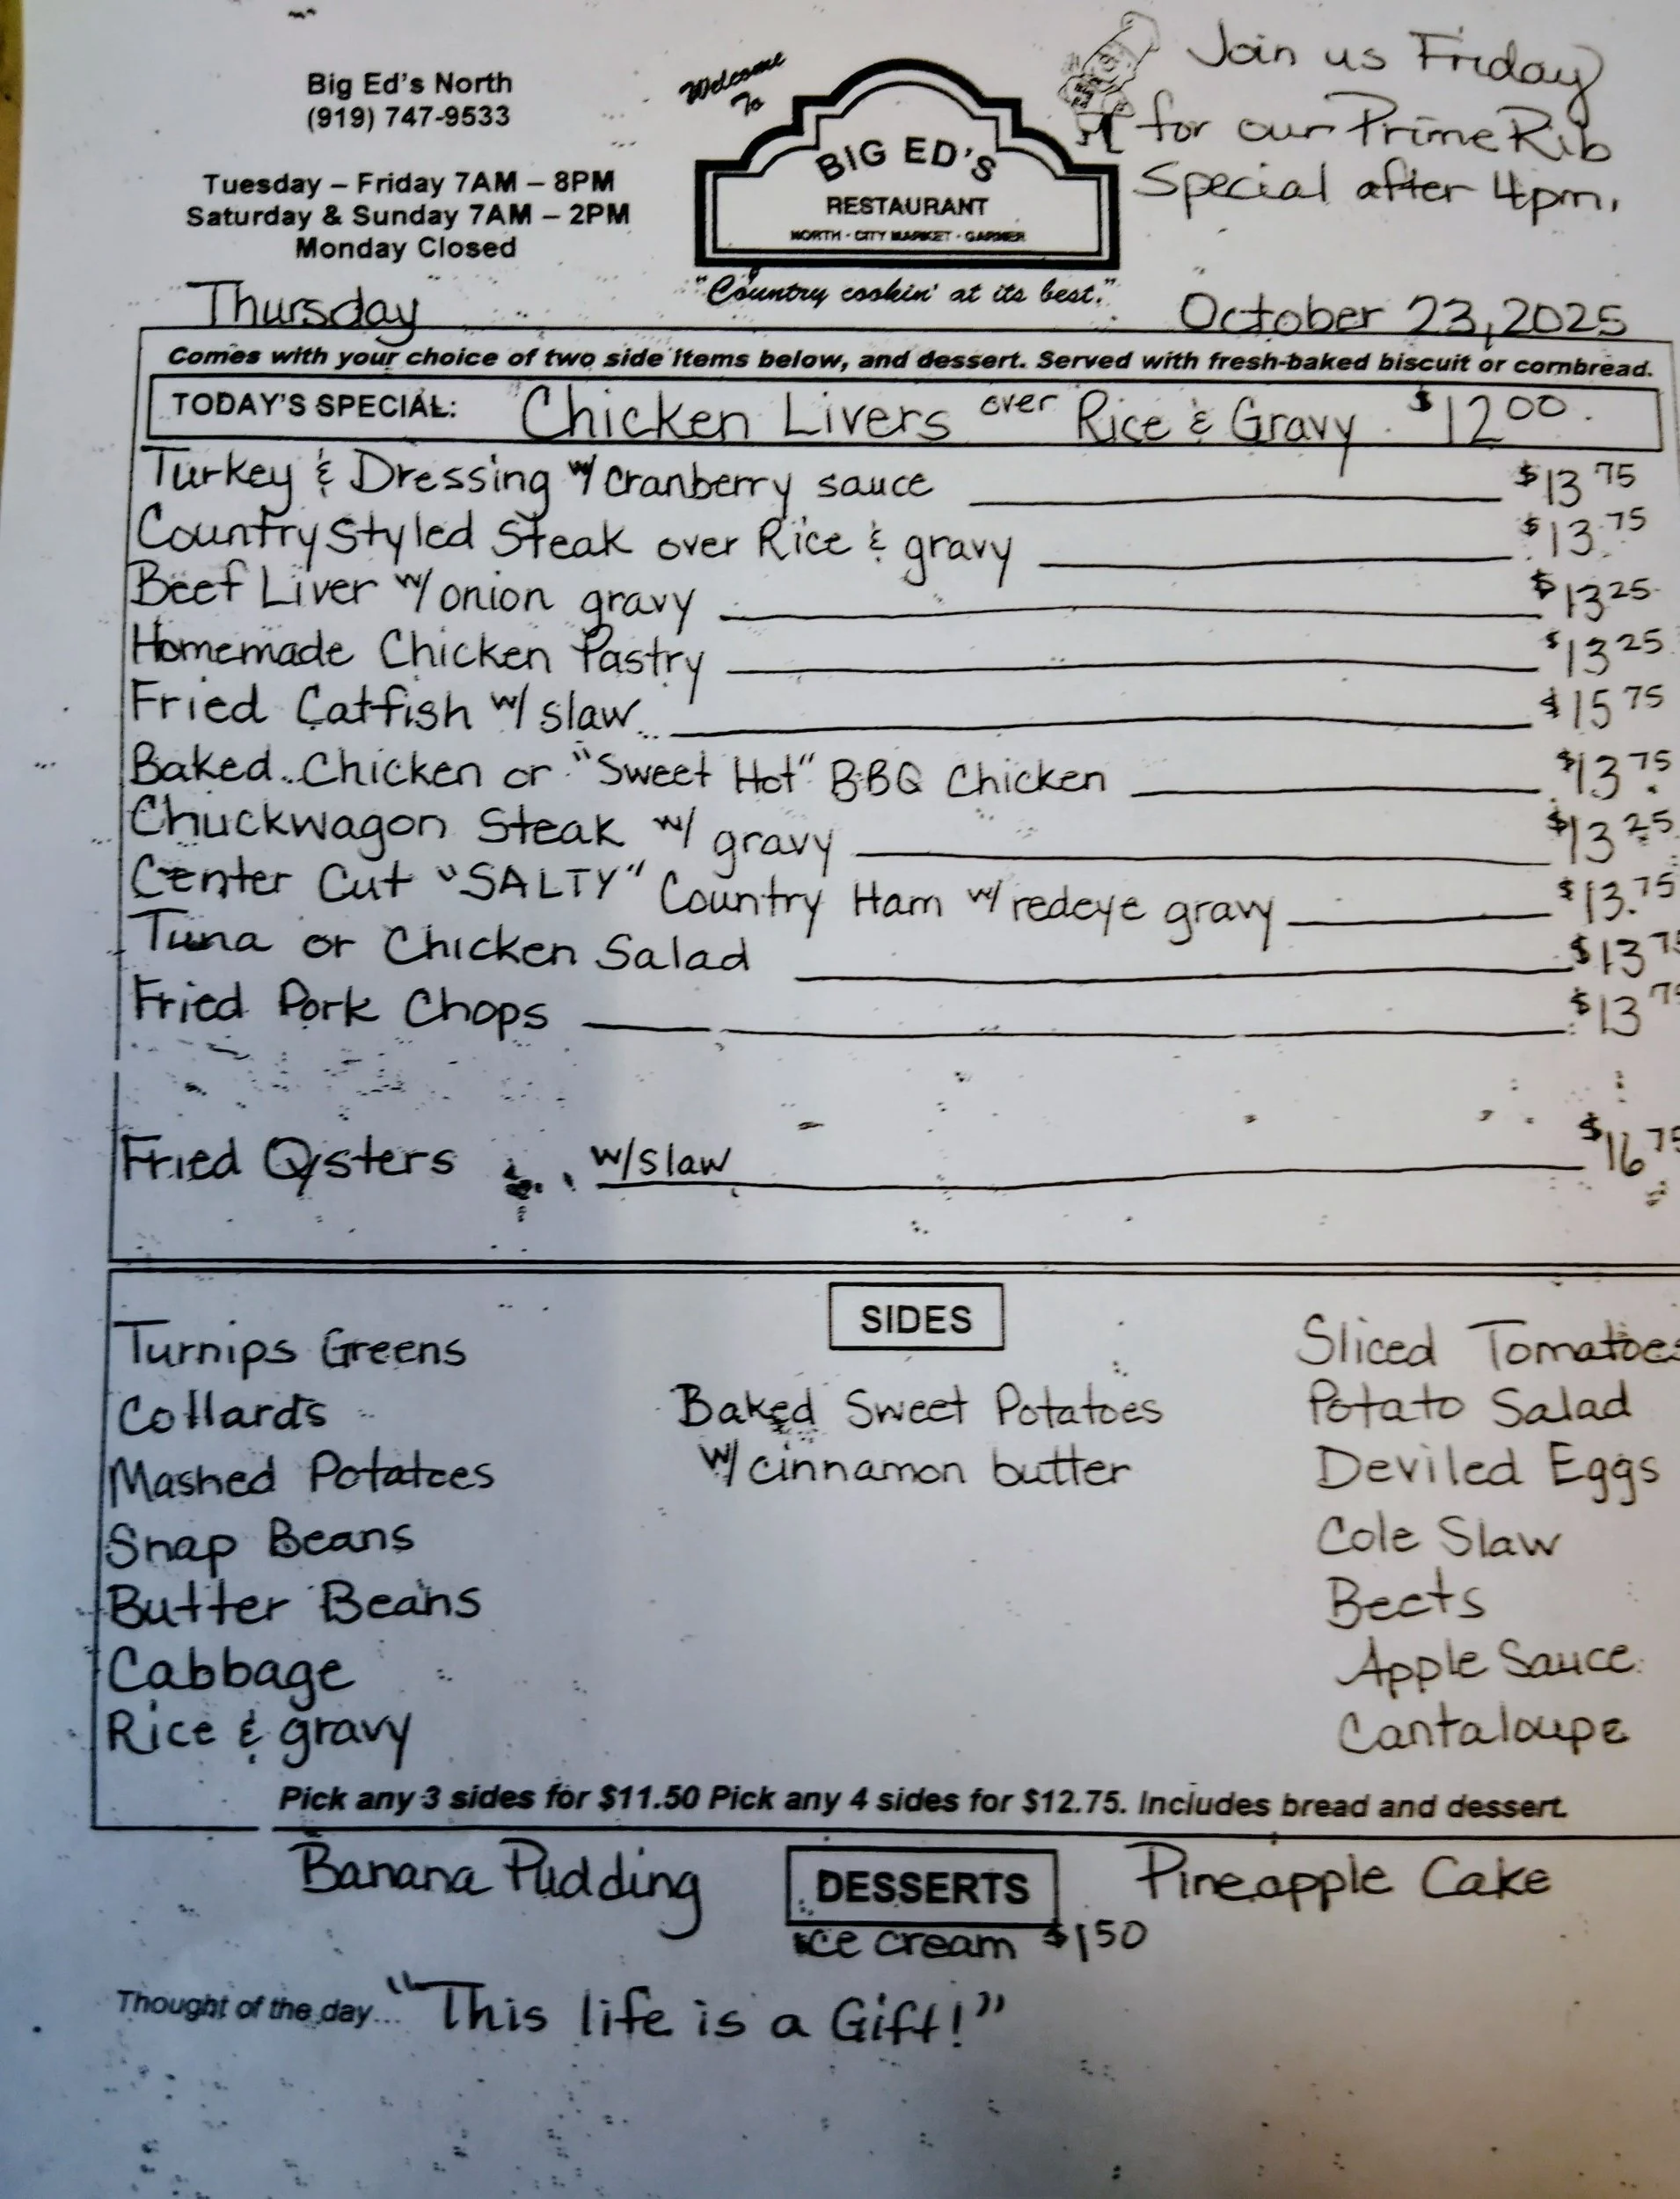 Big Ed's North
(919) 747-9533
Tuesday – Friday 7AM – 8PM
Saturday & Sunday 7AM – 2PM
Monday Closed
Welcome
To
BIG ED'S
RESTAURANT
NORTH - CITY MARKET - GARNER
"Country cookin' at its best."
Join us Friday
for our Prime Rib
Special after 4pm.
Thursday
October 23, 2025
Comes with your choice of two side items below, and dessert. Served with fresh-baked biscuit or cornbread.
TODAY'S SPECIAL: Chicken Livers over Rice & Gravy $12 00.
Turkey & Dressing w/ cranberry sauce $13 75
Country Styled Steak over Rice & gravy $13.75
Beef Liver w/ onion gravy $13 25
Homemade Chicken Pastry $13 25
Fried Catfish w/ slaw $15 75
Baked Chicken or "Sweet Hot" BBQ Chicken $13.75
Chuckwagon Steak w/ gravy $13 25
Center Cut "SALTY" Country Ham w/ redeye gravy $13.75
Tuna or Chicken Salad $13 75
Fried Pork Chops $13 75
Fried Oysters w/slaw $16 75
SIDES
Turnips Greens
Collards
Mashed Potatoes
Snap Beans
Butter Beans
Cabbage
Rice & gravy
Baked Sweet Potatoes
w/ cinnamon butter
Sliced Tomatoes
Potato Salad
Deviled Eggs
Cole Slaw
Beets
Apple Sauce
Cantaloupe
Pick any 3 sides for $11.50 Pick any 4 sides for $12.75. Includes bread and dessert.
Banana Pudding
DESSERTS
Pineapple Cake
ice cream $1 50
Thought of the day... "This life is a Gift!"